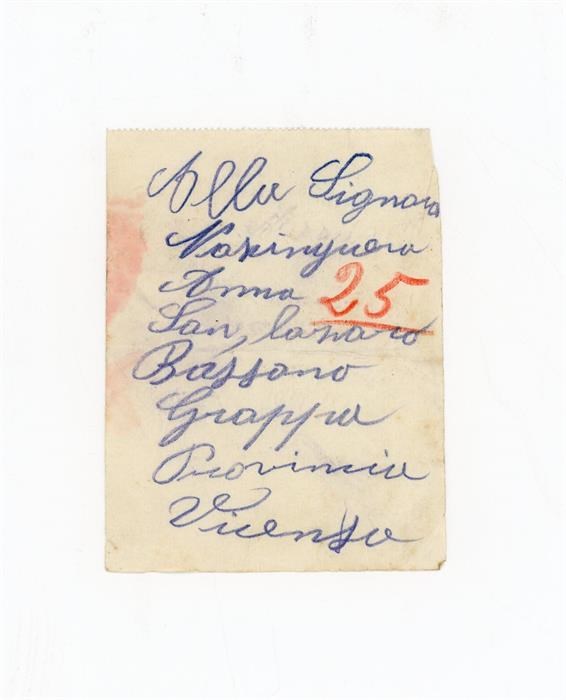 Alla Signora
Anna 25
San, lazaro
Bassano
Grappa
Provincia
Vicenza